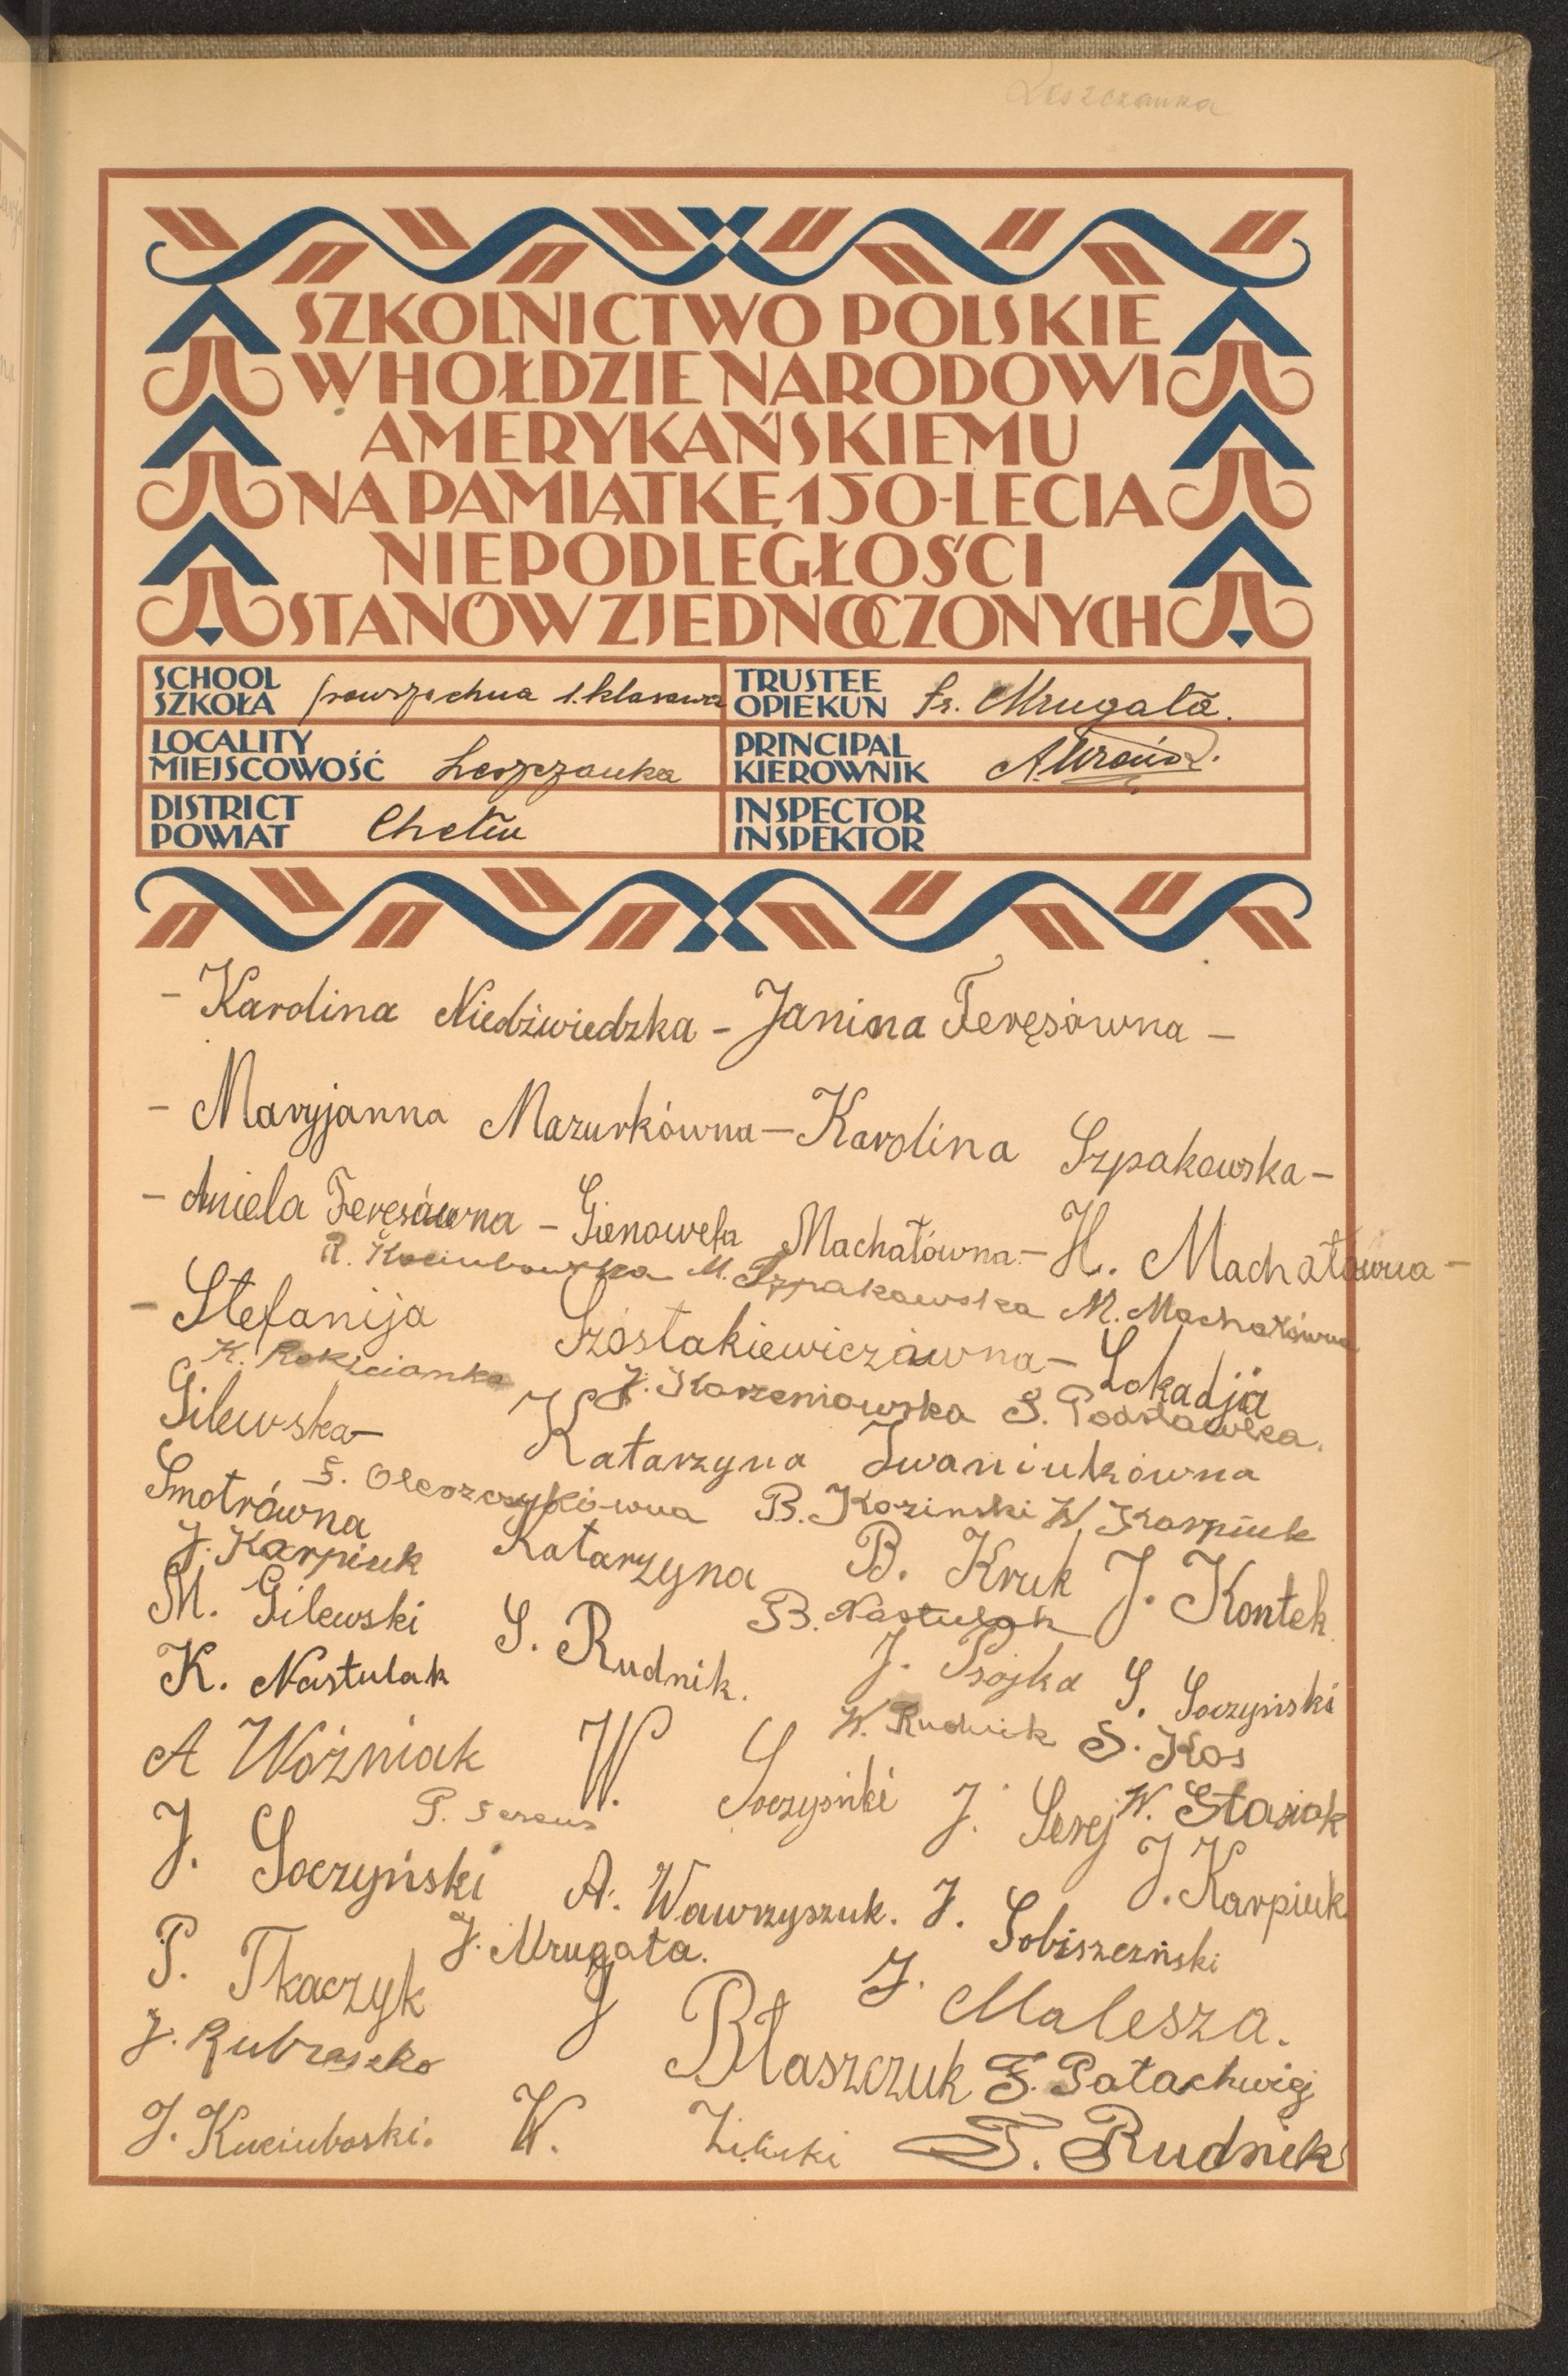 Leszczanka
SZKOLNICTWO POLSKIE
W HOŁDZIE NARODOWI
AMERYKAŃSKIEMU
NA PAMIĄTKĘ 150-LECIA
NIEPODLEGŁOŚCI
STANÓW ZJEDNOCZONYCH
SCHOOL
SZKOŁA powszechna 1. klasowa
TRUSTEE
OPIEKUN Fr. Mrugała.
LOCALITY
MIEJSCOWOŚĆ Leszczanka
PRINCIPAL
KIEROWNIK
DISTRICT
POWIAT Chełm
INSPECTOR
INSPEKTOR
- Karolina Niedźwiedzka - Janina Feręsówna -
- Maryjanna Mazurkówna - Karolina Szpakowska -
- Aniela Feręsówna - Gienowefa Machałówna - H. Machałówna -
R. Kociubowska M. Szpakowska M. Machałówna
- Stefanija Szóstakiewiczówna - Lokadja
K. Rokicianka J. Korzeniowska S. Podsławka.
Gilewska - Katarzyna Iwaniukówna
S. Oleszczykówna B. Kozinski W Karpiuk
Smotrówna Katarzyna B. Kruk J. Kontek
J. Karpiuk
M. Gilewski S. Rudnik. B. Nastulak
K. Nastulak J. Psojka S. Soczyński
W. Rudnik S. Kos
A Woźniak W. Soczyśnki J. Serej W. Stasiak
P. Fereus
J. Soczyński A. Wawrzyszuk. J. Sobiszezński J. Karpiuk
P. Tkaczyk J. Mrugała.
J Błaszczuk J. Malesza.
J. Kubraszko F. Patachwiej
J. Kuciuboski. K. Ziliński F. Rudnik